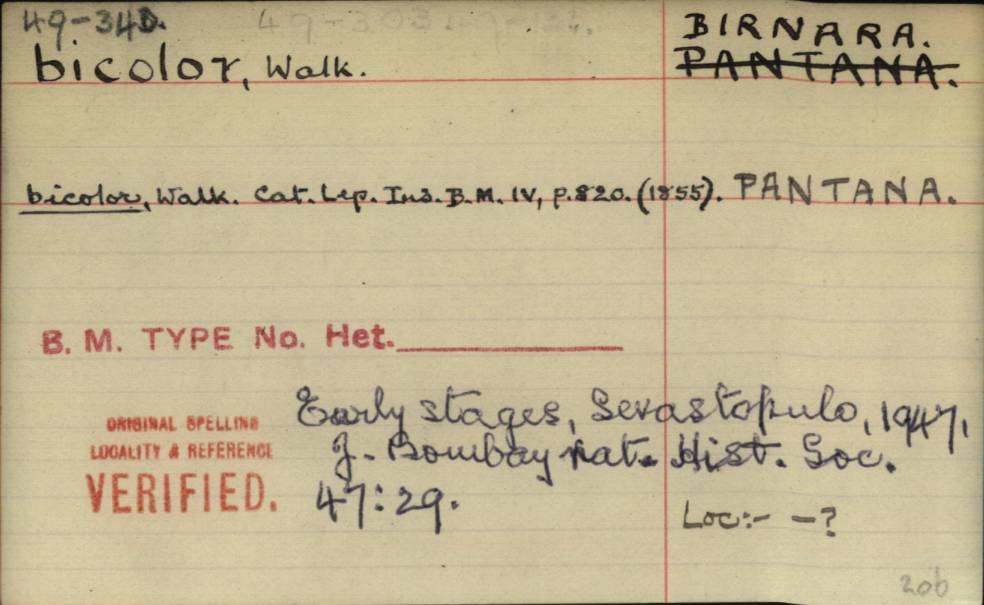 49-34D.
bicolor, Walk.
BIRNARA.
PANTANA.
bicolor, Walk. Cat. Lep. Ins. B.M. IV, p.820. (1855). PANTANA.
B. M. TYPE No. Het.
ORIGINAL SPELLING
LOCALITY & REFERENCE
VERIFIED.
Early stages, Sevastopulo, 1947,
J. Bombay nat. Hist. Soc.
47:29.
Loc:- -?
206